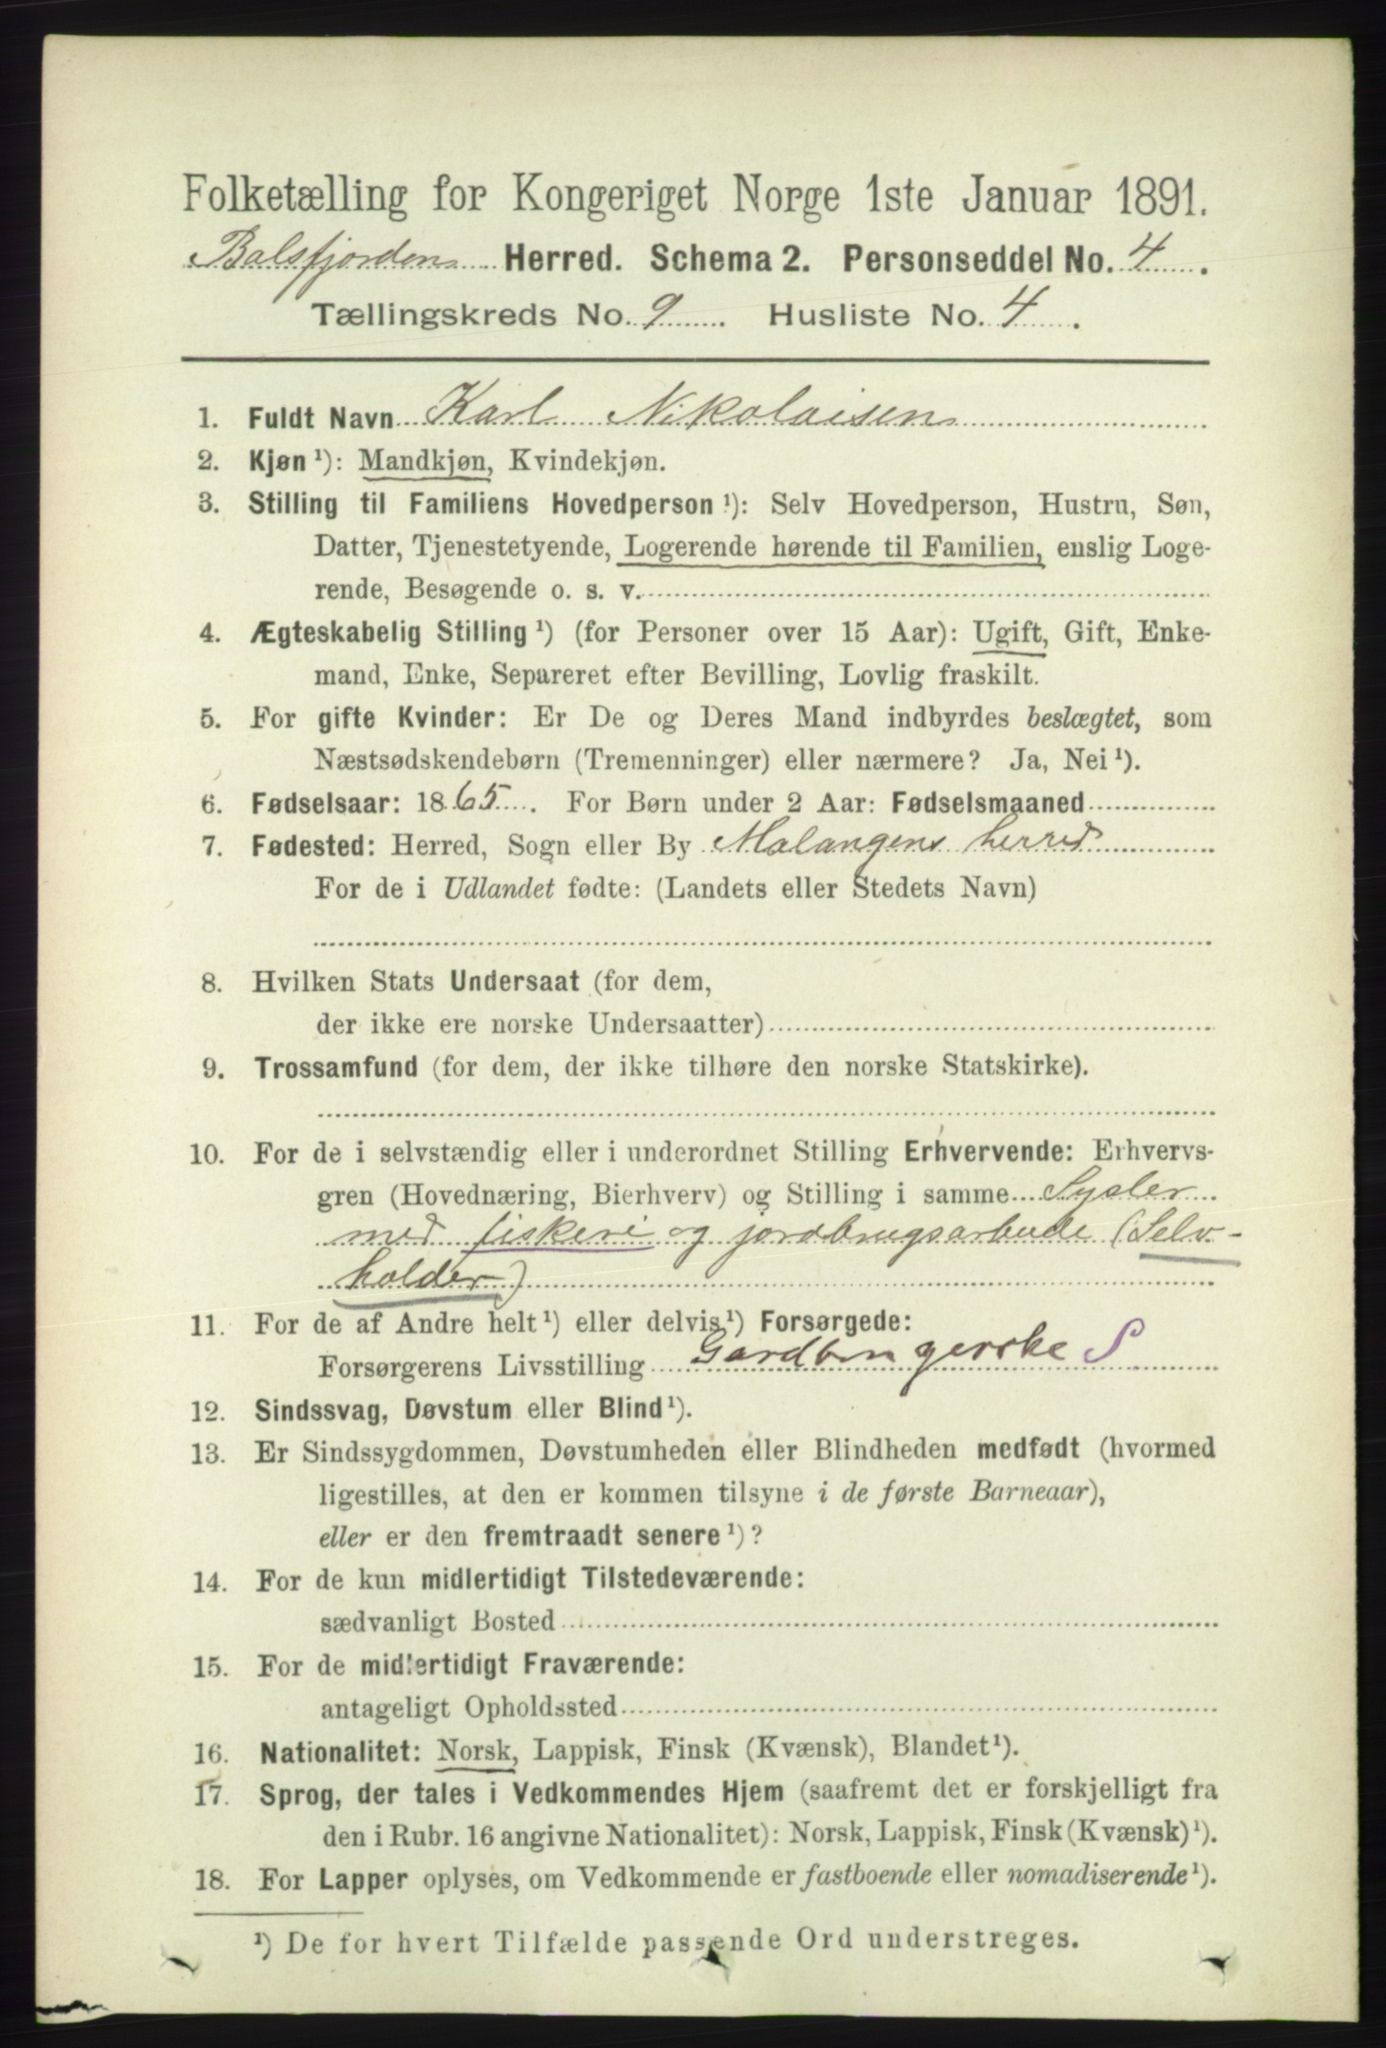 Folketælling for Kongeriget Norge 1ste Januar 1891.
Balsfjordens Herred. Schema 2. Personseddel No. 4.
Tællingskreds No. 9. Husliste No. 4.
1. Fuldt Navn Karl Nikolaisen
2. Kjøn ¹): Mandkjøn, Kvindekjøn.
3. Stilling til Familiens Hovedperson ¹): Selv Hovedperson, Hustru, Søn,
Datter, Tjenestetyende, Logerende hørende til Familien, enslig Loge-
rende, Besøgende o. s. v.
4. Ægteskabelig Stilling ¹) (for Personer over 15 Aar): Ugift, Gift, Enke-
mand, Enke, Separeret efter Bevilling, Lovlig fraskilt.
5. For gifte Kvinder: Er De og Deres Mand indbyrdes beslægtet, som
Næstsødskendebørn (Tremenninger) eller nærmere? Ja, Nei ¹).
6. Fødselsaar: 1865. For Børn under 2 Aar: Fødselsmaaned
7. Fødested: Herred, Sogn eller By Malangens herred
For de i Udlandet fødte: (Landets eller Stedets Navn)
8. Hvilken Stats Undersaat (for dem,
der ikke ere norske Undersaatter)
9. Trossamfund (for dem, der ikke tilhøre den norske Statskirke).
10. For de i selvstændig eller i underordnet Stilling Erhvervende: Erhvervs-
gren (Hovednæring, Bierhverv) og Stilling i samme Sysler
med fiskeri og jordbrugsarbeide (Selv-
holder)
11. For de af Andre helt ¹) eller delvis ¹) Forsørgede:
Forsørgerens Livsstilling Gardbrugerske S
12. Sindssvag, Døvstum eller Blind ¹).
13. Er Sindssygdommen, Døvstumheden eller Blindheden medfødt (hvormed
ligestilles, at den er kommen tilsyne i de første Barneaar),
eller er den fremtraadt senere ¹)?
14. For de kun midlertidigt Tilstedeværende:
sædvanligt Bosted
15. For de midlertidigt Fraværende:
antageligt Opholdssted
16. Nationalitet: Norsk, Lappisk, Finsk (Kvænsk), Blandet ¹).
17. Sprog, der tales i Vedkommendes Hjem (saafremt det er forskjelligt fra
den i Rubr. 16 angivne Nationalitet): Norsk, Lappisk, Finsk (Kvænsk) ¹).
18. For Lapper oplyses, om Vedkommende er fastboende eller nomadiserende ¹).
¹) De for hvert Tilfælde passende Ord understreges.